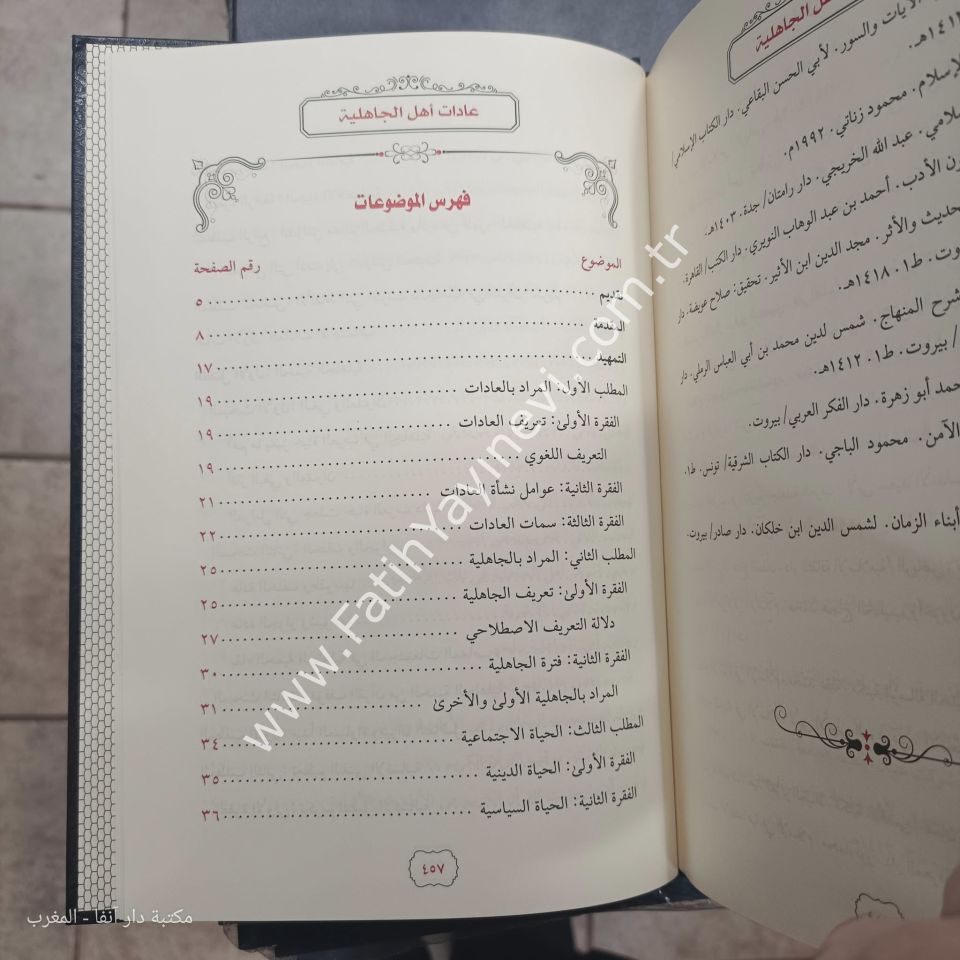 عادات أهل الجاهلية
فهرس الموضوعات
الموضوع رقم الصفحة
تقديم ٥
المقدمة ٨
التمهيد ١٧
المطلب الأول: المراد بالعادات ١٩
الفقرة الأولىٰ: تعريف العادات ١٩
التعريف اللغوي ١٩
الفقرة الثانية: عوامل نشأة العادات ٢١
الفقرة الثالثة: سمات العادات ٢٢
المطلب الثاني: المراد بالجاهلية ٢٥
الفقرة الأولىٰ: تعريف الجاهلية ٢٥
دلالة التعريف الاصطلاحي ٢٧
الفقرة الثانية: فترة الجاهلية ٣٠
المراد بالجاهلية الأولىٰ والأخرىٰ ٣١
المطلب الثالث: الحياة الاجتماعية ٣٤
الفقرة الأولىٰ: الحياة الدينية ٣٥
الفقرة الثانية: الحياة السياسية ٣٦
٤٥٧
أهل الجاهلية
الآيات والسور. لأبي الحسن البقاعي. دار الكتاب الإسلامي/
هـ.
الإسلام. محمود زناتي. ١٩٩٢م.
عبد الله الخريجي. دار رامتان/ جدة. ١٤٠٣هـ.
الأدب. أحمد بن عبد الوهاب النويري. دار الكتب/ القاهرة.
الحديث والأثر. مجد الدين ابن الأثير. تحقيق: صلاح عويضة. دار
ط١. ١٤١٨هـ.
شرح المنهاج. شمس لدين محمد بن أبي العباس الرملي. دار
/ بيروت. ط١. ١٤١٢هـ.
أبو زهرة. دار الفكر العربي/ بيروت.
الآمن. محمود الباجي. دار الكتاب الشرقية/ تونس. ط١.
أبناء الزمان. لشمس الدين ابن خلكان. دار صادر/ بيروت.
www.FatihYayinevi.com.tr
مكتبة دار آنفا - المغرب